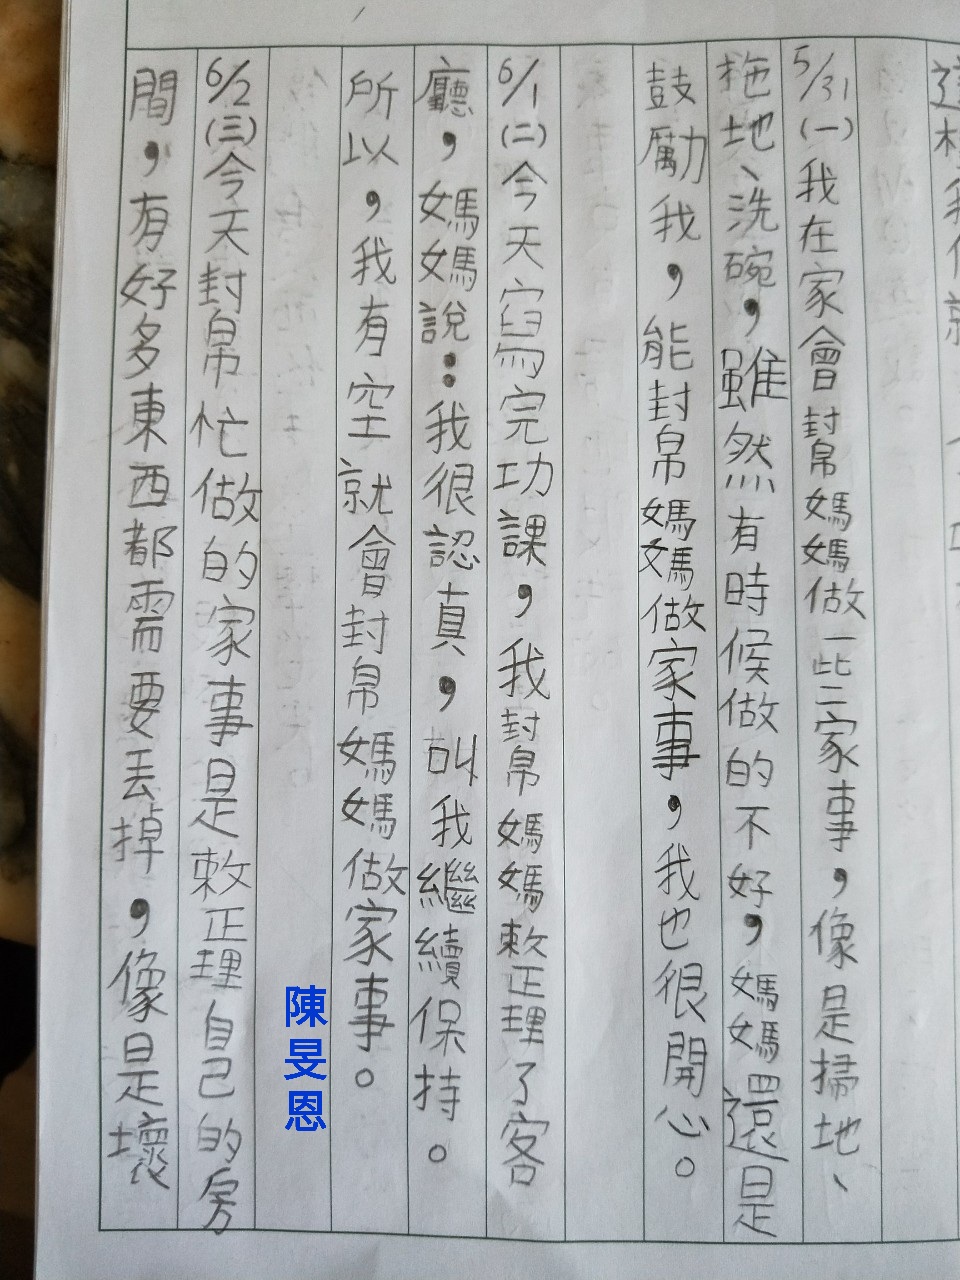 5/31(一)我在家會幫媽媽做一些家事，像是掃地、
拖地、洗碗，雖然有時候做的不好，媽媽還是
鼓勵我，能幫媽媽做家事，我也很開心。
6/1(二)今天寫完功課，我幫媽媽整理了客
廳，媽媽說：我很認真，叫我繼續保持。
所以，我有空就會幫媽媽做家事。
陳旻恩
6/2(三)今天幫忙做的家事是整理自己的房
間，有好多東西都需要丟掉，像是壞